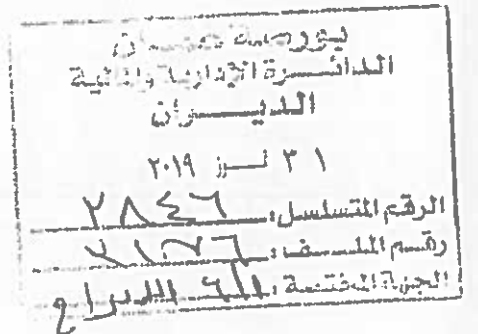 بورصة عمان
الدائرة الإدارية والمالية
الديوان
٣١ تموز ٢٠١٩
الرقم المتسلسل: ٢٨٤٦
رقم الملف:
الجهة المختصة: